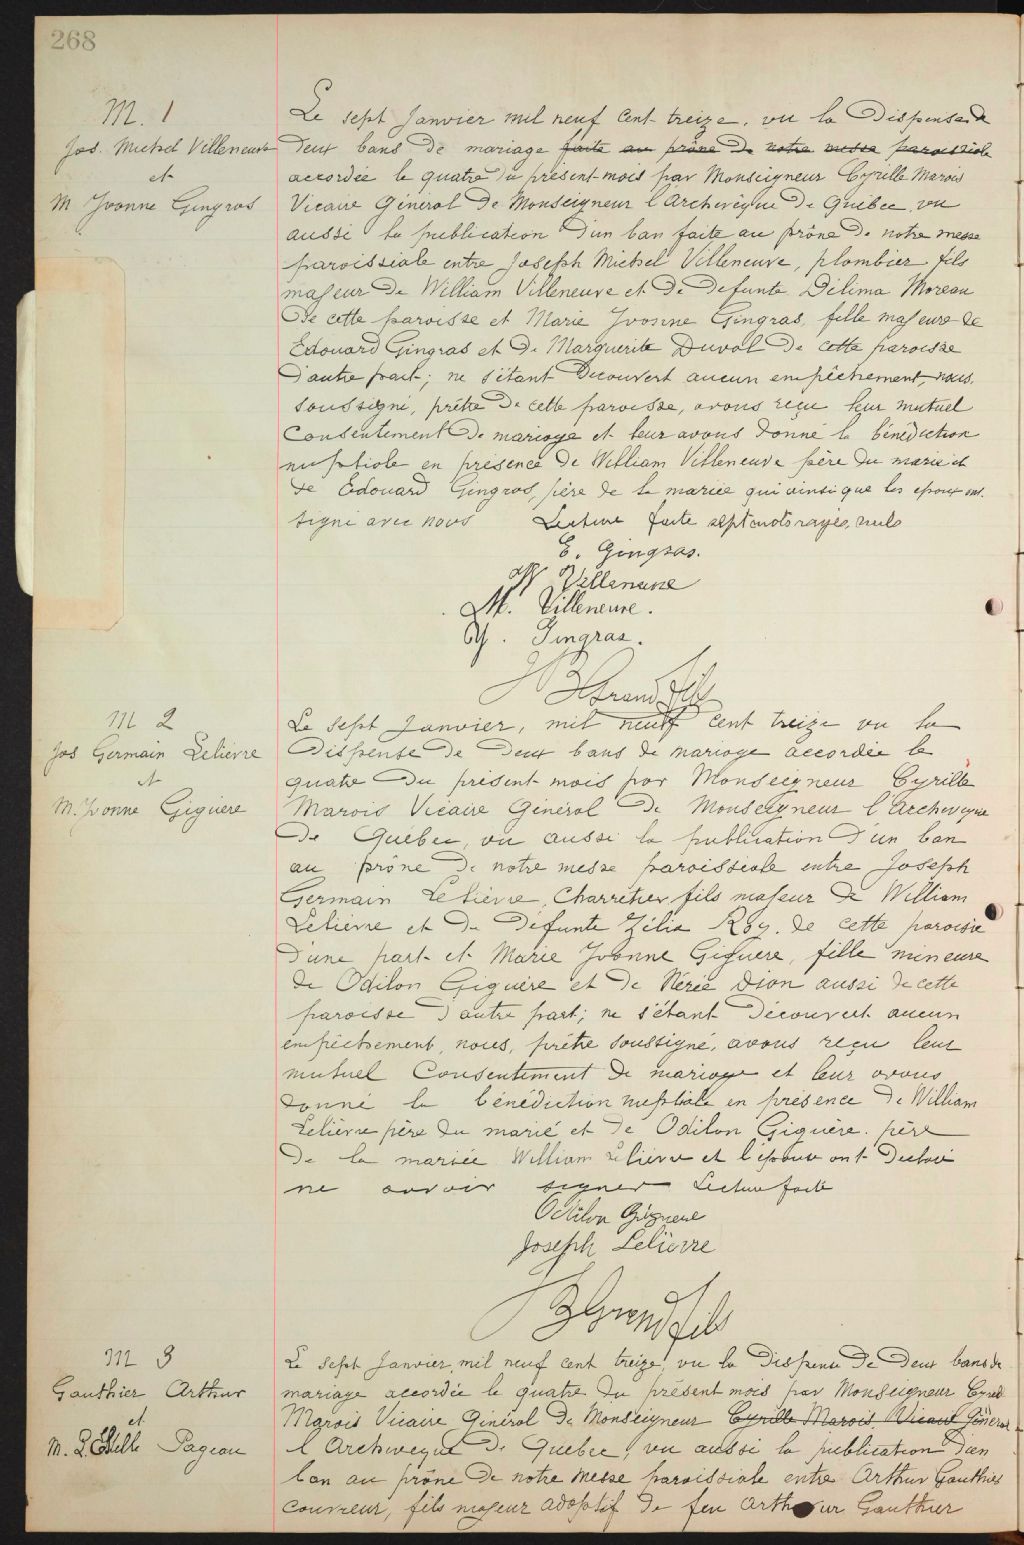 268
M. 1
Jos. Michel Villeneuve
et
M Yvonne Gingras
Le sept Janvier mil neuf cent treize, vu la Dispense de
Deux bans de mariage faite au prône de notre messe paroissiale
accordée le quatre du présent mois par Monseigneur Cyrille Marois
Vicaire Général de Monseigneur l'Archevêque de Québec, vu
aussi la publication d'un ban faite au prône de notre messe
paroissiale entre Joseph Michel Villeneuve, plombier fils
majeur de William Villeneuve et de Defunte Délima Moreau
de cette paroisse et Marie Yvonne Gingras, fille majeure de
Edouard Gingras et de Marguerite Duval de cette paroisse
d'autre part; ne s'étant Découvert aucun empêchement, nous,
soussigné, prêtre de cette paroisse, avons reçu leur mutuel
Consentement de mariage et leur avons donné la bénédiction
nuptiale en présence de William Villeneuve père du marié et
de Edouard Gingras, père de la mariée qui ainsi que les époux ont
signé avec nous Lecture faite sept mots rayés, nuls
E. Gingras.
W Villeneuve
M. Villeneuve.
Y. Gingras.
JB Grandfils
M 2
Jos Germain Lelièvre
et
M. Yvonne Giguère
Le sept Janvier, mil neuf cent treize vu la
Dispense de Deux bans de mariage accordée le
quatre du présent mois par Monseigneur Cyrille
Marois Vicaire Général de Monseigneur l'Archevêque
de Québec, vu aussi la publication d'un ban
au prône de notre messe paroissiale entre Joseph
Germain Lelièvre, Charretier, fils majeur de William
Lelièvre et de Défunte Zélia Roy, de cette paroisse
d'une part et Marie Yvonne Giguère, fille mineure
de Odilon Giguère et de Nérée Dion aussi de cette
paroisse d'autre part; ne s'étant Découvert aucun
empêchement, nous, prêtre soussigné, avons reçu leur
mutuel Consentement de mariage et leur avons
donné la bénédiction nuptiale en présence de William
Lelièvre père du marié et de Odilon Giguère père
de la mariée William Lelièvre et l'épouse ont Déclaré
ne savoir signer Lecture faite
Odilon Giguère
Joseph Lelièvre
JB Grandfils
M 3
Gauthier Arthur
et
M. Pageau
Le sept Janvier, mil neuf cent treize, vu la Dispense de Deux bans de
mariage accordée le quatre du présent mois par Monseigneur Cyrille
Marois Vicaire Général de Monseigneur Cyrille Marois Vicaire Général
l'Archevêque de Québec, vu aussi la publication d'un
ban au prône de notre messe paroissiale entre Arthur Gauthier
couvreur, fils majeur adoptif de feu Arthur Gauthier